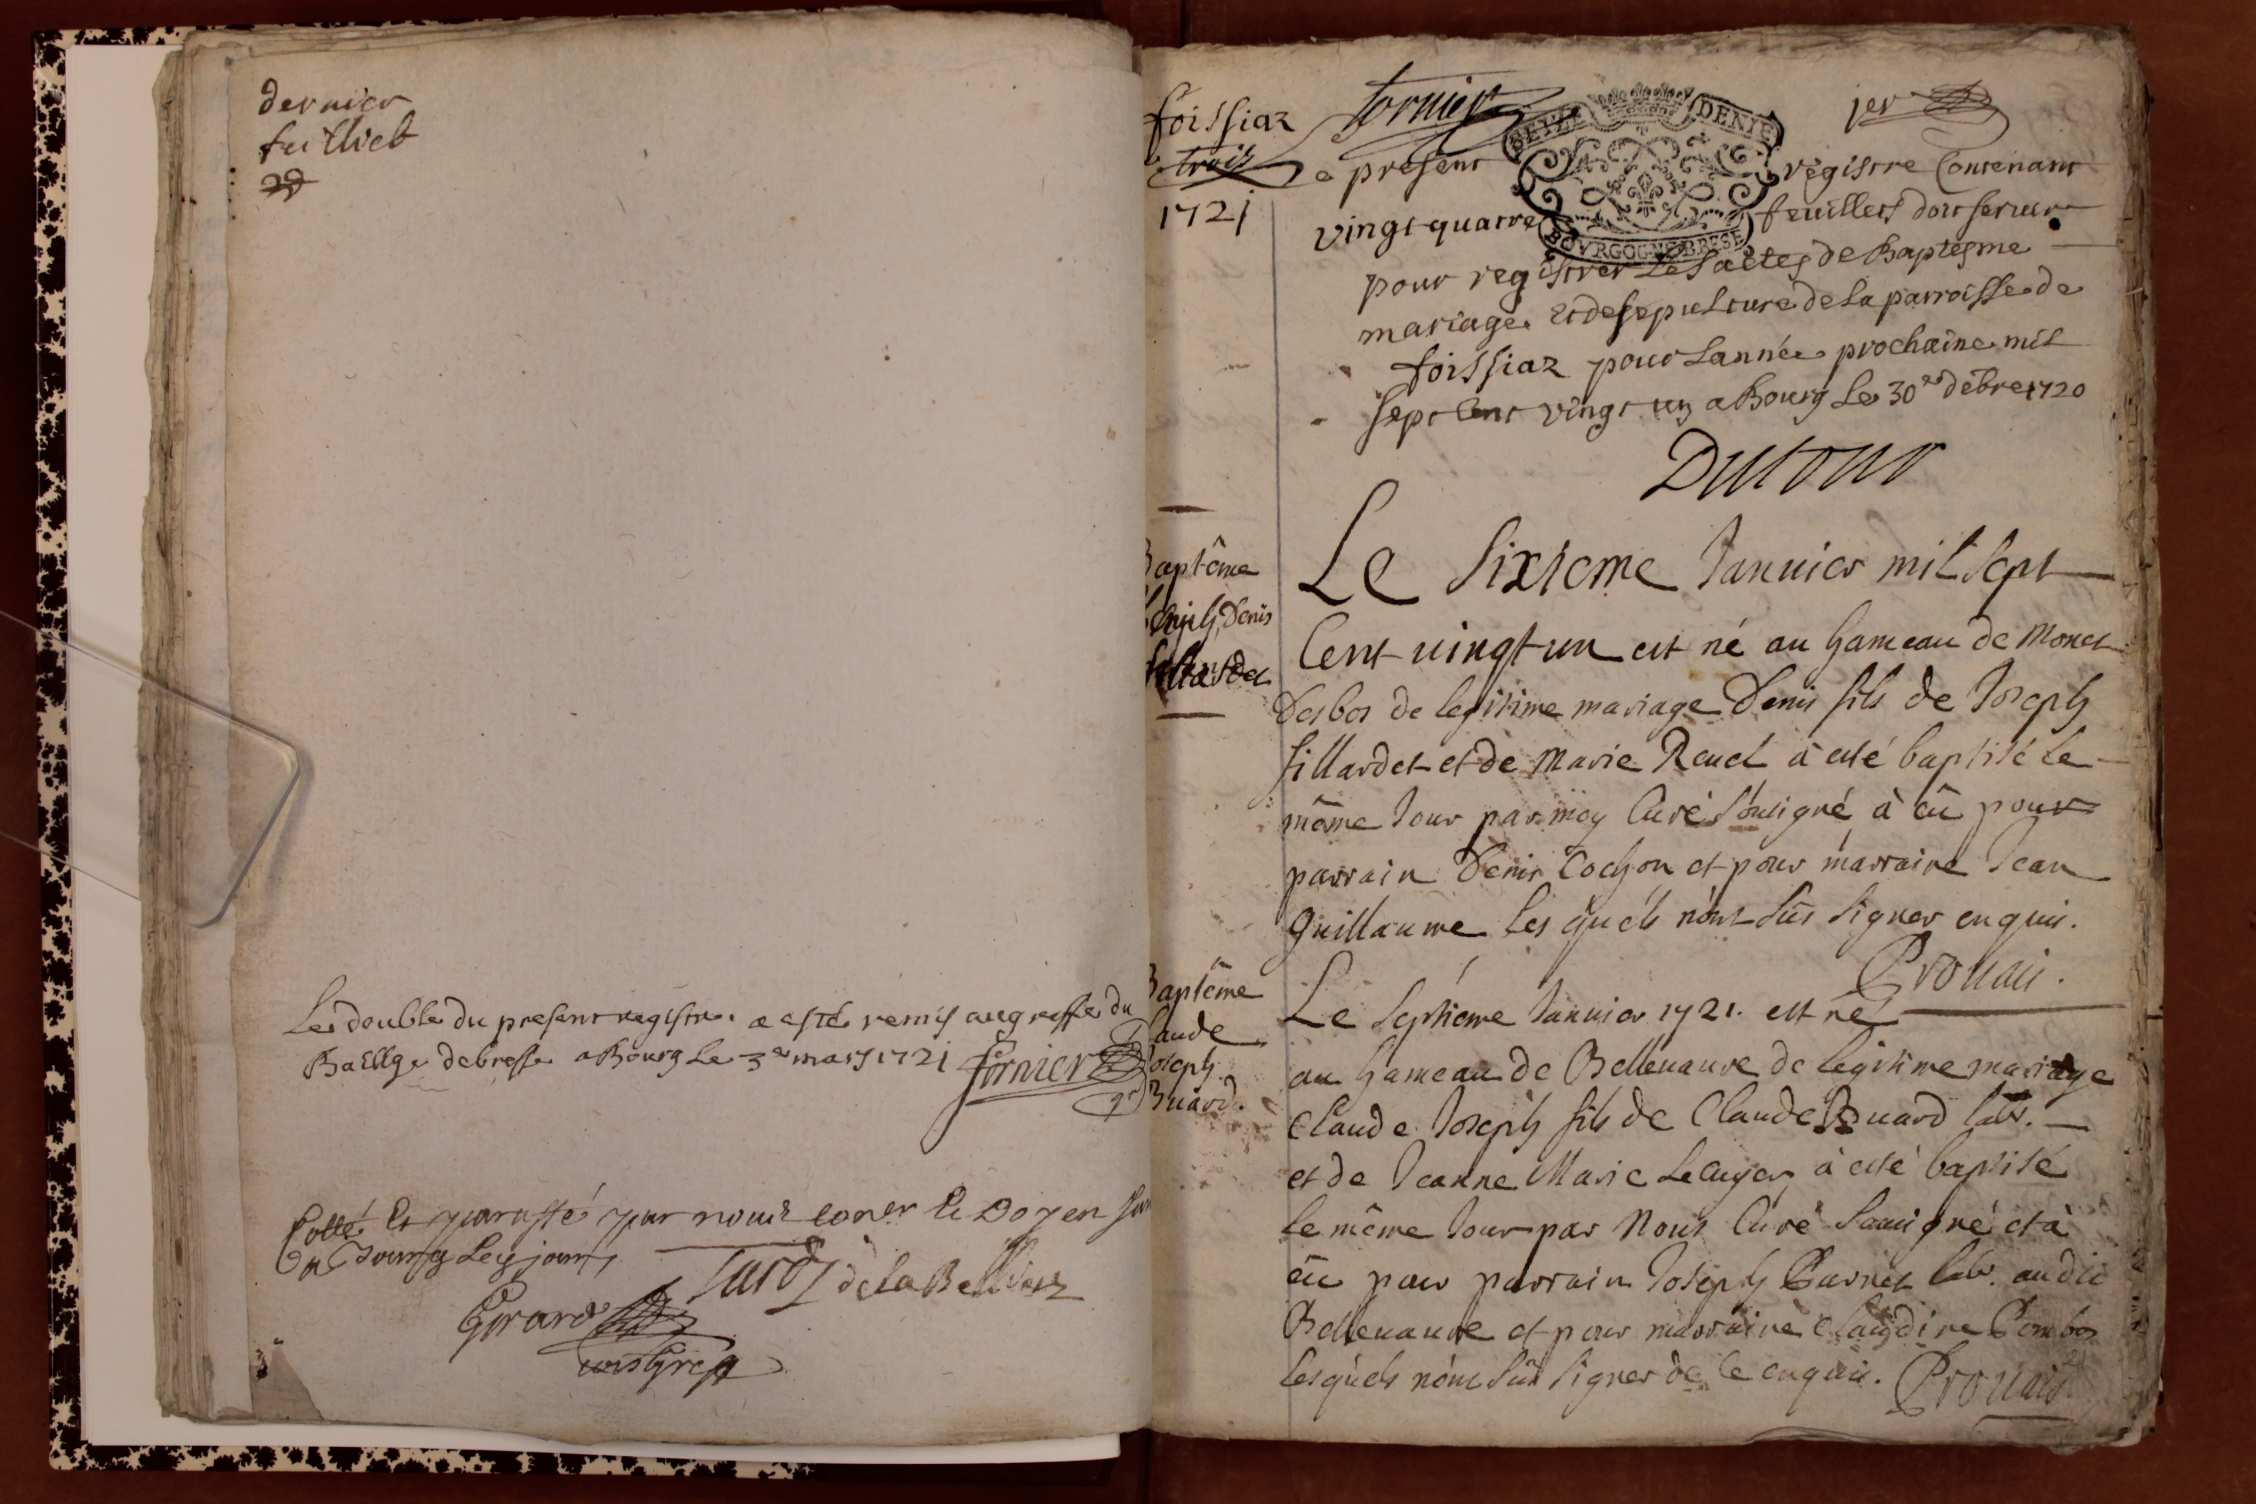 dernier
feüillet
Le double du present registre a esté remis au greffe du
Baillge de bresse a Bourg Le 3e mars 1721 fornier
Cotté et paraffé par nous coner le Doyen
a Bourg les jour
Tardy de la Belliere
Girard
foissiaz
trois
1721
fornier
1er
SEYZE DENIE
BOVRGOGNE BRESE
Le present registre Contenant
vingt quatre feuillets doit servir
pour registrer Les actes de Baptesme
mariage et de sepulture de La parroisse de
foissiaz pour L'année prochaine mil
sept Cent vingt un a Bourg Le 30e debre 1720
Dutour
Baptême
Denis
fillardet
Le sixieme Januier mil sept
Cent uingt un est né au hameau de Monet
Desbos de legitime mariage Denis fils de Joseph
fillardet et de Marie Reuel à esté baptisé le
même Jour par moy Curé sousigné à eû pour
parrain Denis Cochon et pour marraine Jean
Guillaume Les quels n'ont sus signer enquis.
Prouais.
Baptême
Claude
Joseph
Buard.
Le septieme Januier 1721. est né
au hameau de Belleuaure de legitime mariage
Claude Joseph fils de Claude Buard labr.
et de Jeanne Marie Lecuyer à esté baptisé
le même Jour par Nous Curé sousigné et à
eû pour parrain Joseph labr. audit
Belleuaure et pour marraine Claudine
Lesquels n'ont sus signer de ce enquis. Prouais